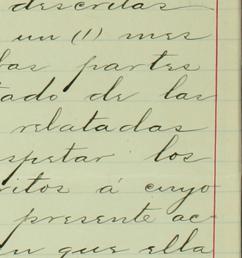 descritas
un (1) mes
bas partes
tado de las
relatadas
spetar los
itos á cuyo
presente ac-
n que ella